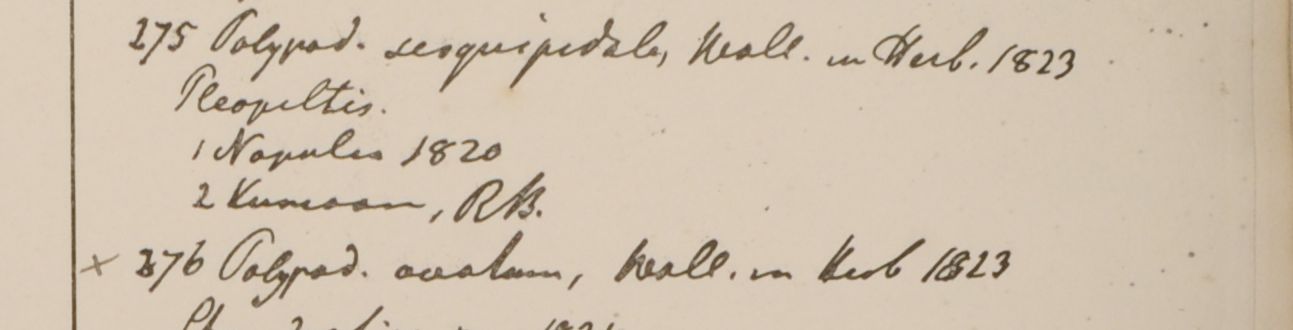 275 Polypod. sesquipedale, Wall. in Herb. 1823
Pleopeltis.
1 Napalia 1820
2 Kumaon, RB.
x 276 Polypod. ovatum, Wall. in Herb 1823